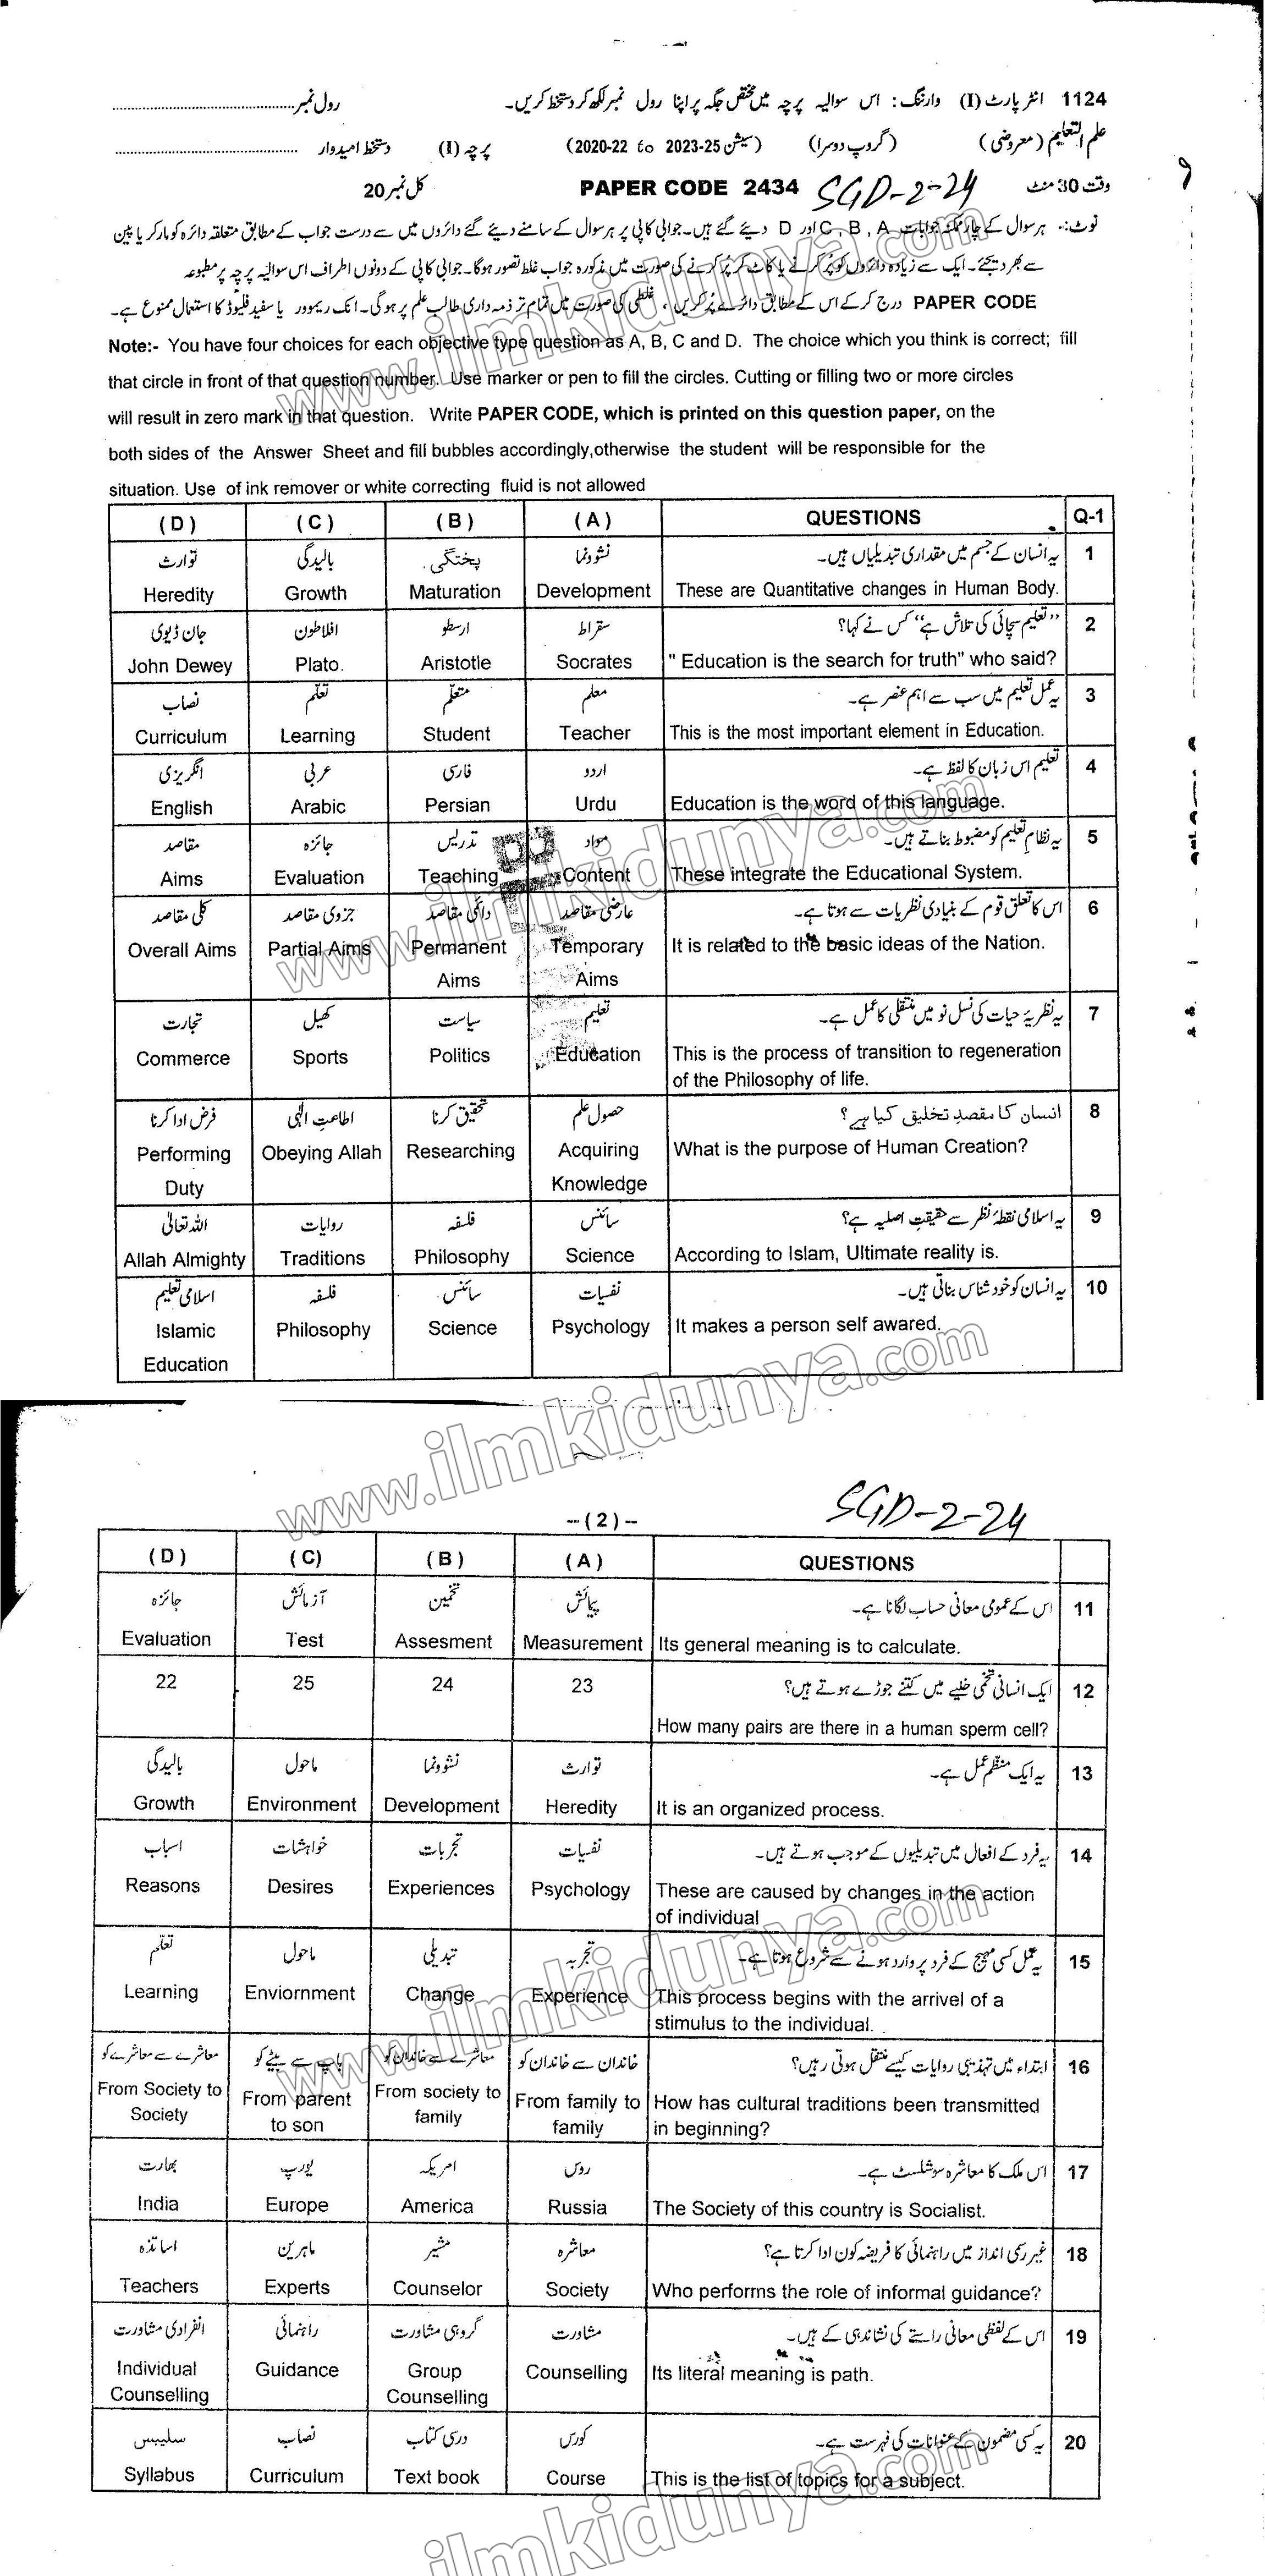 1124 انٹر پارٹ (I) وارننگ: اس سوالیہ پرچہ میں مختص جگہ پر اپنا رول نمبر لکھ کر دستخط کریں۔ رول نمبر
علم التعلیم (معروضی) (گروپ دوسرا) (سیشن 2020-22 to 2023-25) پرچہ (I) دستخط امیدوار
وقت 30 منٹ PAPER CODE 2434 SGD-2-24 کل نمبر 20
نوٹ:- ہر سوال کے چار ممکنہ جوابات A , B , C اور D دیئے گئے ہیں۔ جوابی کاپی پر ہر سوال کے سامنے دیئے گئے دائروں میں سے درست جواب کے مطابق متعلقہ دائرہ کو مارکر یا پین
سے بھر دیجئے۔ ایک سے زیادہ دائروں کو پُر کرنے یا کاٹ کر پُر کرنے کی صورت میں مذکورہ جواب غلط تصور ہوگا۔ جوابی کاپی کے دونوں اطراف اس سوالیہ پرچہ پر مطبوعہ
PAPER CODE درج کر کے اس کے مطابق دائرے پُر کریں، غلطی کی صورت میں تمام تر ذمہ داری طالب علم پر ہوگی۔ انک ریموور یا سفید فلیوڈ کا استعمال ممنوع ہے۔
Note:- You have four choices for each objective type question as A, B, C and D. The choice which you think is correct; fill
that circle in front of that question number. Use marker or pen to fill the circles. Cutting or filling two or more circles
will result in zero mark in that question. Write PAPER CODE, which is printed on this question paper, on the
both sides of the Answer Sheet and fill bubbles accordingly,otherwise the student will be responsible for the
situation. Use of ink remover or white correcting fluid is not allowed
(D) (C) (B) (A) QUESTIONS Q-1
توارث بالیدگی پختگی نشوونما یہ انسان کے جسم میں مقداری تبدیلیاں ہیں۔ 1
Heredity Growth Maturation Development These are Quantitative changes in Human Body.
جان ڈیوی افلاطون ارسطو سقراط "تعلیم سچائی کی تلاش ہے" کس نے کہا؟ 2
John Dewey Plato Aristotle Socrates " Education is the search for truth" who said?
نصاب تعلّم متعلّم معلم یہ عمل تعلیم میں سب سے اہم عنصر ہے۔ 3
Curriculum Learning Student Teacher This is the most important element in Education.
انگریزی عربی فارسی اردو تعلیم اس زبان کا لفظ ہے۔ 4
English Arabic Persian Urdu Education is the word of this language.
مقاصد جائزہ تدریس مواد یہ نظامِ تعلیم کو مضبوط بناتے ہیں۔ 5
Aims Evaluation Teaching Content These integrate the Educational System.
کلی مقاصد جزوی مقاصد دائمی مقاصد عارضی مقاصد اس کا تعلق قوم کے بنیادی نظریات سے ہوتا ہے۔ 6
Overall Aims Partial Aims Permanent Aims Temporary Aims It is related to the basic ideas of the Nation.
تجارت کھیل سیاست تعلیم یہ نظریۂ حیات کی نسلِ نو میں منتقلی کا عمل ہے۔ 7
Commerce Sports Politics Education This is the process of transition to regeneration
of the Philosophy of life.
فرض ادا کرنا اطاعتِ الٰہی تحقیق کرنا حصول علم انسان کا مقصدِ تخلیق کیا ہے؟ 8
Performing Duty Obeying Allah Researching Acquiring Knowledge What is the purpose of Human Creation?
اللہ تعالیٰ روایات فلسفہ سائنس یہ اسلامی نقطۂ نظر سے حقیقتِ اصلیہ ہے؟ 9
Allah Almighty Traditions Philosophy Science According to Islam, Ultimate reality is.
اسلامی تعلیم فلسفہ سائنس نفسیات یہ انسان کو خود شناس بناتی ہیں۔ 10
Islamic Education Philosophy Science Psychology It makes a person self awared.
SGD-2-24
--(2)--
(D) (C) (B) (A) QUESTIONS
جائزہ آزمائش تخمین پیمائش اس کے عمومی معانی حساب لگانا ہے۔ 11
Evaluation Test Assesment Measurement Its general meaning is to calculate.
22 25 24 23 ایک انسانی تخمی خلیے میں کتنے جوڑے ہوتے ہیں؟ 12
How many pairs are there in a human sperm cell?
بالیدگی ماحول نشوونما توارث یہ ایک منظم عمل ہے۔ 13
Growth Environment Development Heredity It is an organized process.
اسباب خواہشات تجربات نفسیات یہ فرد کے افعال میں تبدیلیوں کے موجب ہوتے ہیں۔ 14
Reasons Desires Experiences Psychology These are caused by changes in the action
of individual
تعلّم ماحول تبدیلی تجربہ یہ عمل کسی مہیج کے فرد پر وارد ہونے سے شروع ہوتا ہے۔ 15
Learning Enviornment Change Experience This process begins with the arrivel of a
stimulus to the individual.
معاشرے سے معاشرے کو باپ سے بیٹے کو معاشرے سے خاندان کو خاندان سے خاندان کو ابتداء میں تہذیبی روایات کیسے منتقل ہوتی رہیں؟ 16
From Society to Society From parent to son From society to family From family to family How has cultural traditions been transmitted
in beginning?
بھارت یورپ امریکہ روس اس ملک کا معاشرہ سوشلسٹ ہے۔ 17
India Europe America Russia The Society of this country is Socialist.
اساتذہ ماہرین مشیر معاشرہ غیر رسمی انداز میں راہنمائی کا فریضہ کون ادا کرتا ہے؟ 18
Teachers Experts Counselor Society Who performs the role of informal guidance?
انفرادی مشاورت راہنمائی گروہی مشاورت مشاورت اس کے لفظی معانی راستے کی نشاندہی کے ہیں۔ 19
Individual Counselling Guidance Group Counselling Counselling Its literal meaning is path.
سلیبس نصاب درسی کتاب کورس یہ کسی مضمون کے عنوانات کی فہرست ہے۔ 20
Syllabus Curriculum Text book Course This is the list of topics for a subject.
www.ilmkidunya.com
www.ilmkidunya.com
www.ilmkidunya.com
www.ilmkidunya.com
www.ilmkidunya.com